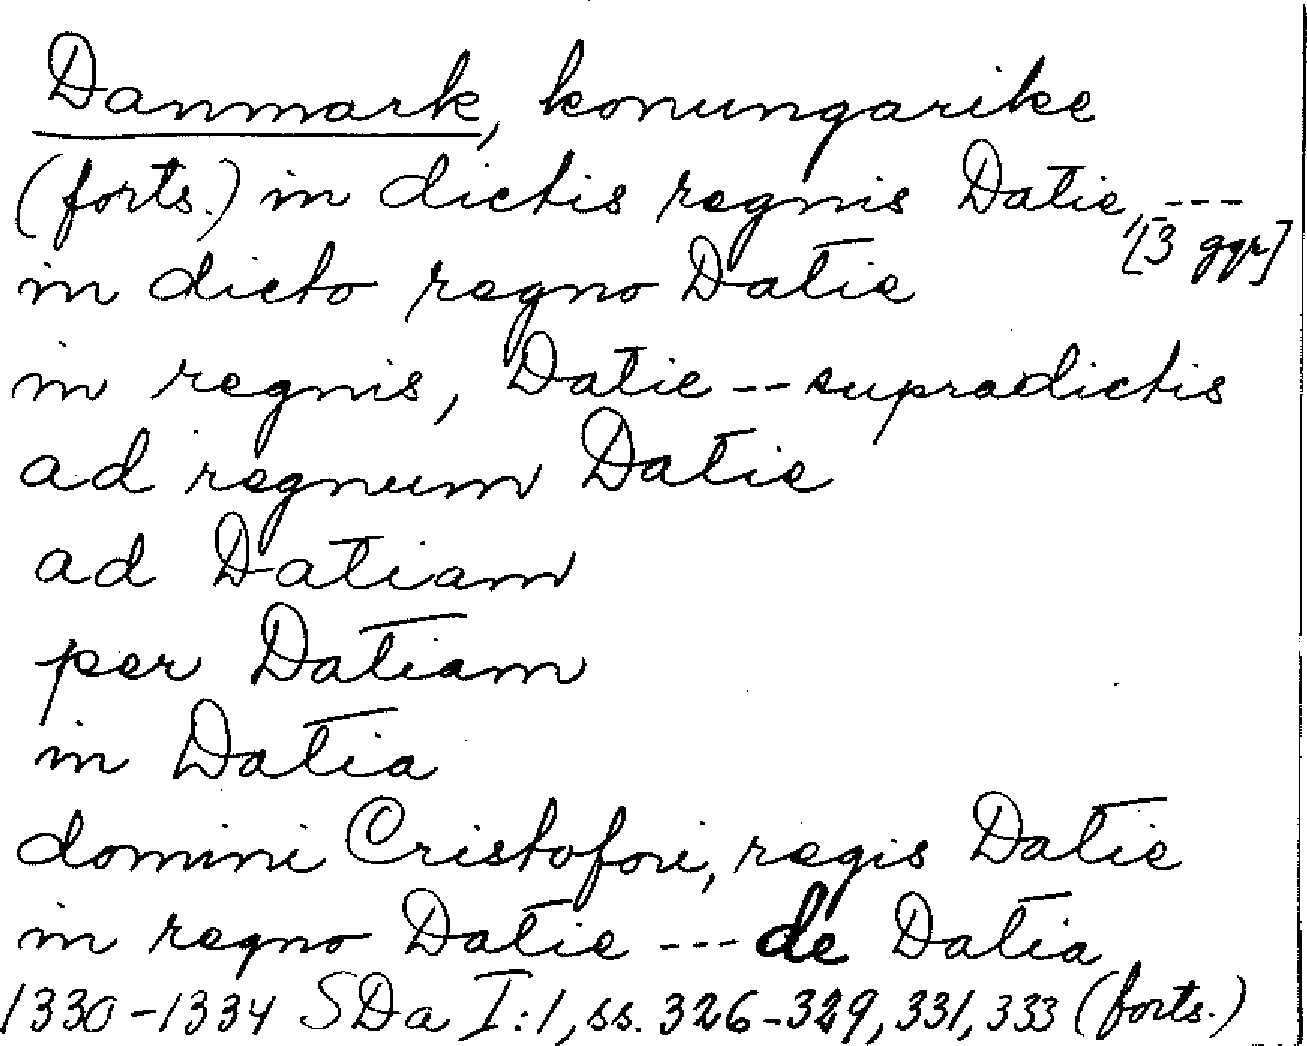 Danmark, konungarike
(forts.) in dictis regnis Datie, ---
[3 ggr]
in dicto regno Datie
in regnis, Datie -- supradictis
ad regnum Datie
ad Datiam
per Datiam
in Datia
domini Cristofori, regis Datie
in regno Datie --- de Datia
1330-1334 SDa I:1, ss. 326-329, 331, 333 (forts.)